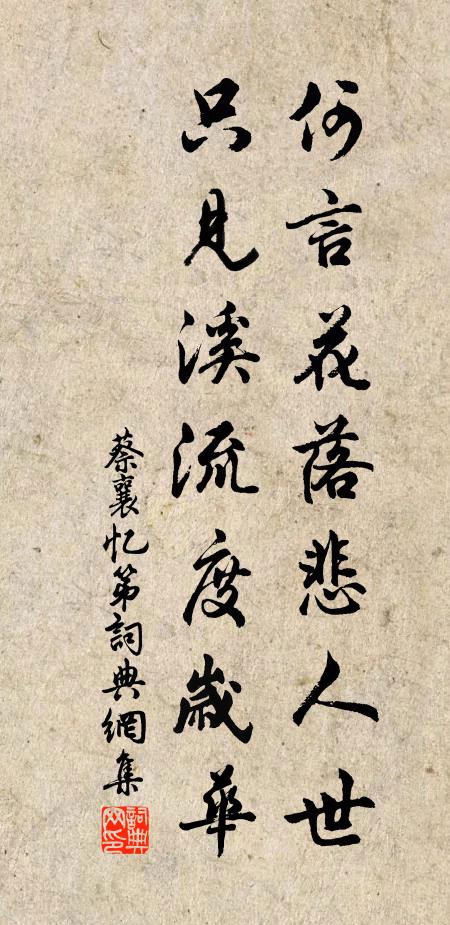 何言花落悲人世
只見溪流度歲華
蔡襄忆第詞典網集
詞典網印